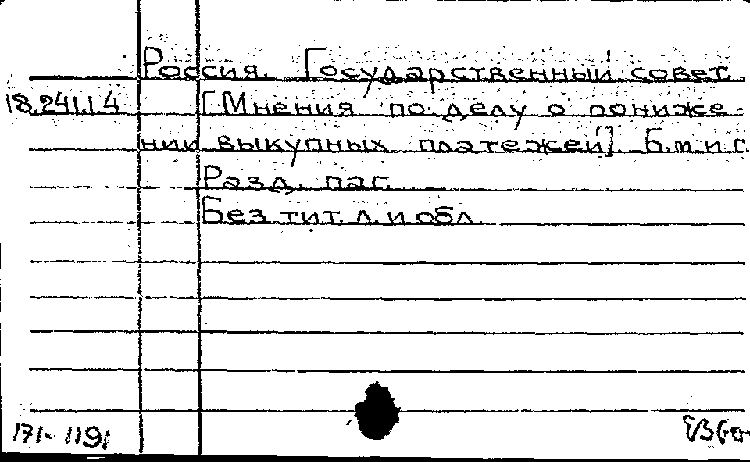 Россия. Государственный совет.
18.241.1.4 [Мнения по делу о пониже-
нии выкупных платежей]. Б.м. и г.
Разд. паг.
Без тит. л. и обл.
171-1191